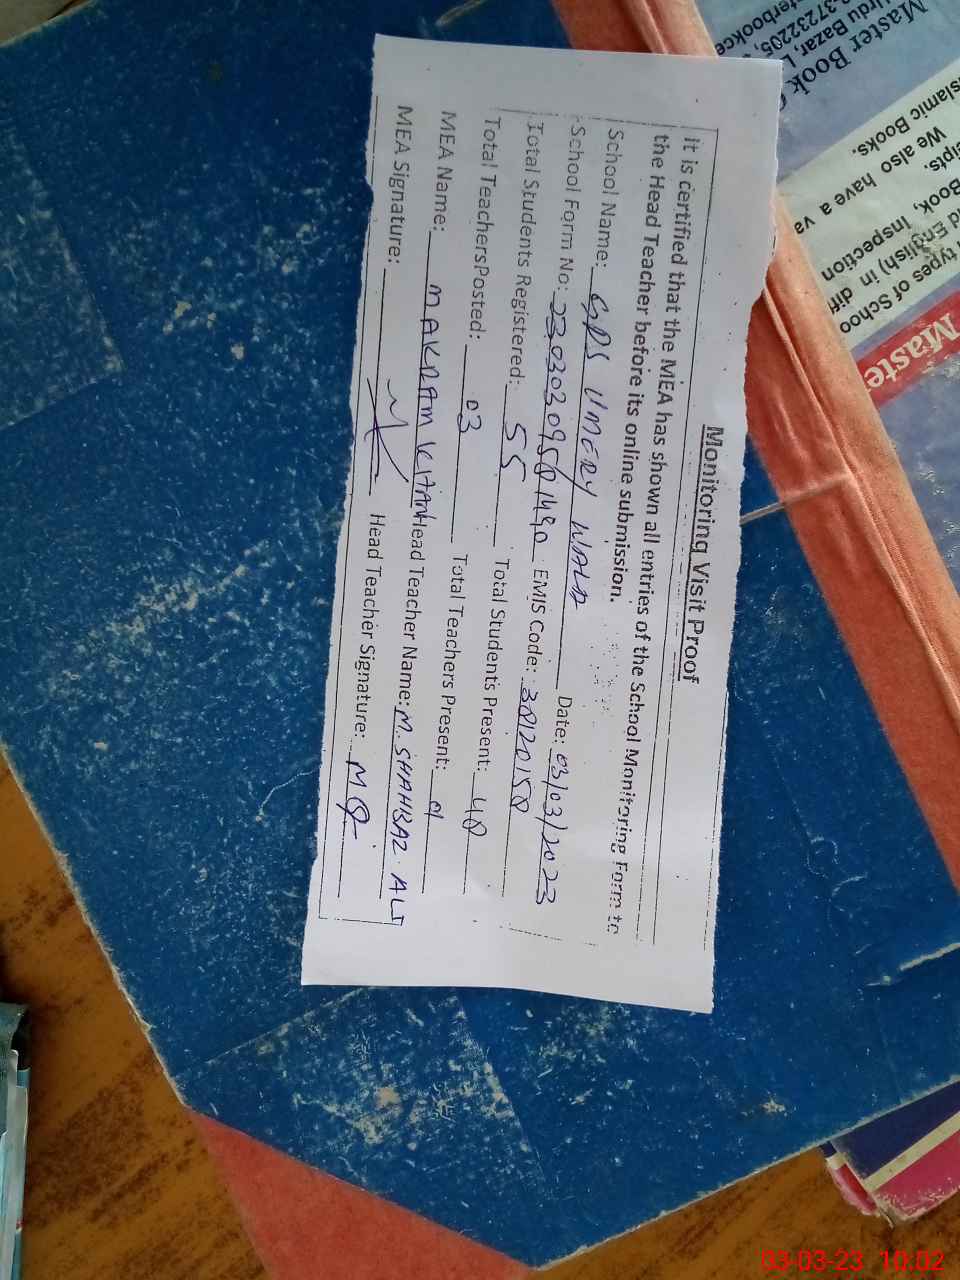 Monitoring Visit Proof
It is certified that the MEA has shown all entries of the School Monitoring Form to
the Head Teacher before its online submission.
School Name: GPS UMERY WALA Date: 03/03/2023
School Form No: EMIS Code:
Total Students Registered: 55 Total Students Present: 48
Total TeachersPosted: 03 Total Teachers Present:
MEA Name: M AKRAM KHAN Head Teacher Name: M. SHAHBAZ ALI
MEA Signature: Head Teacher Signature:
Master Book
Urdu Bazar, L
37232205,
terbookce
slamic Books.
We also have a va
eipts.
Book, Inspection
d English) in diff
types of Schoo
Maste
03-03-23 10:02